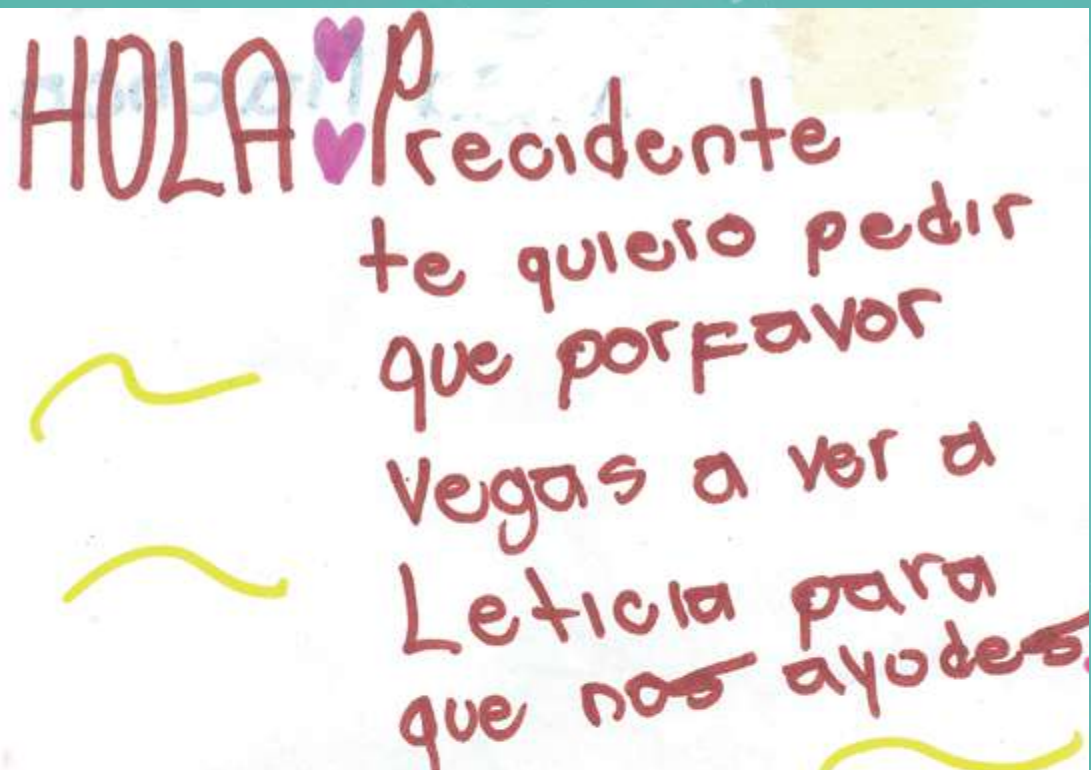 HOLA: Precidente
te quiero pedir
que porfavor
Vegas a ver a
Leticia para
que nos ayudes